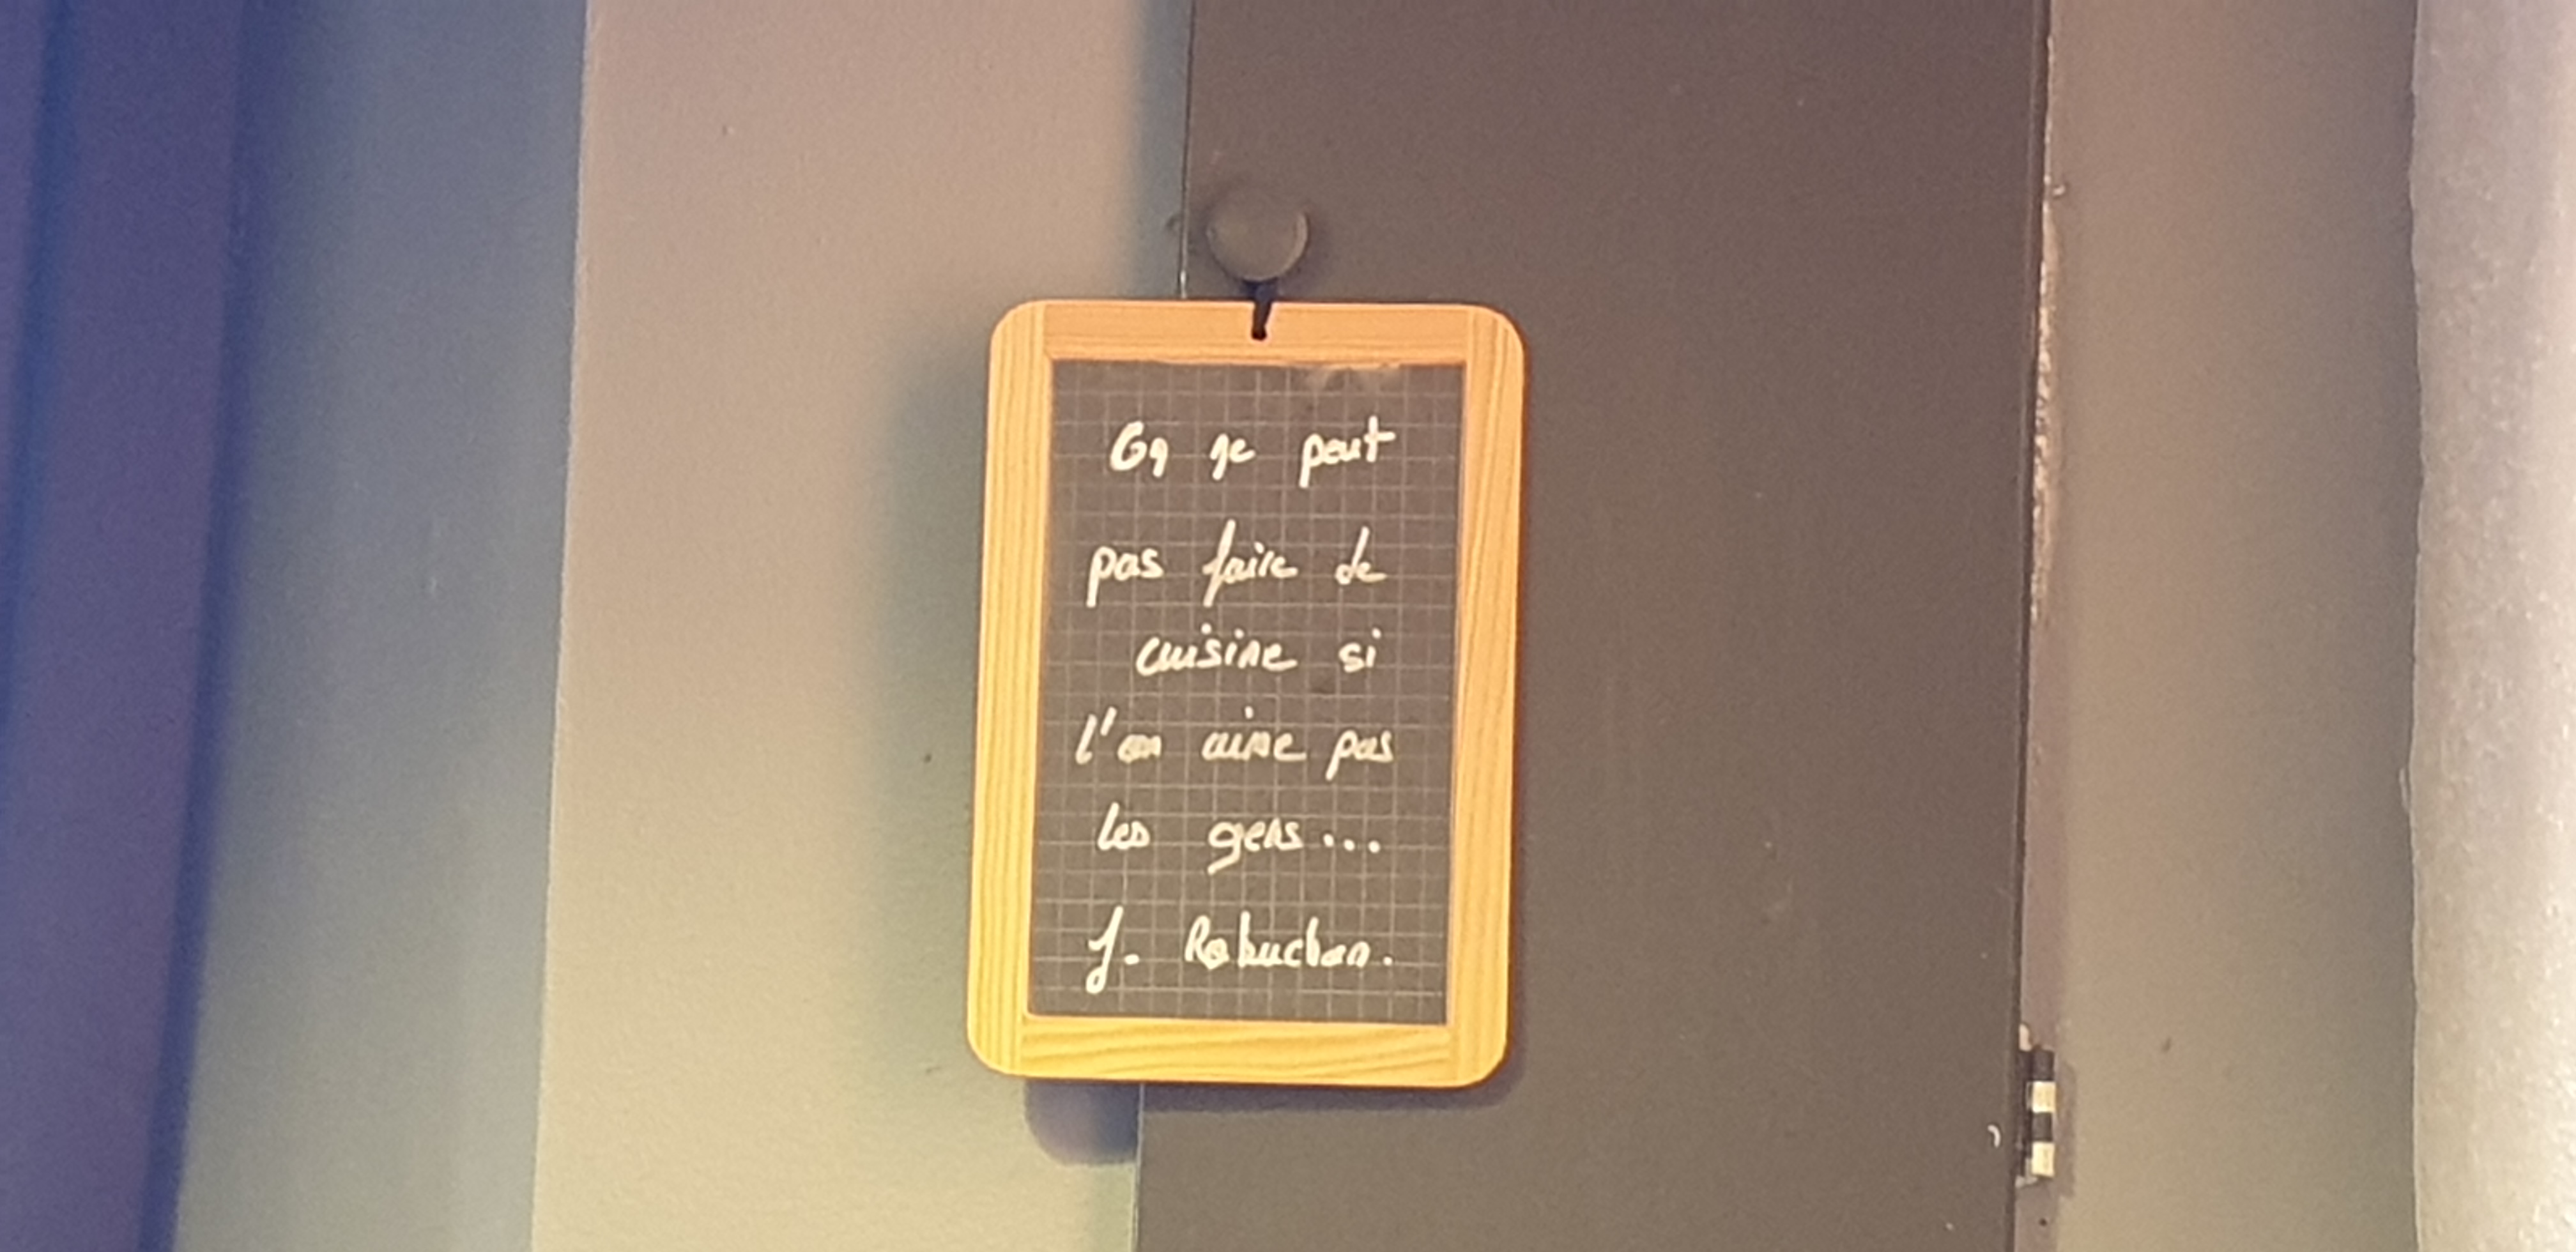 On ne peut
pas faire de
cuisine si
l'on aime pas
les gens...
J. Robuchon.